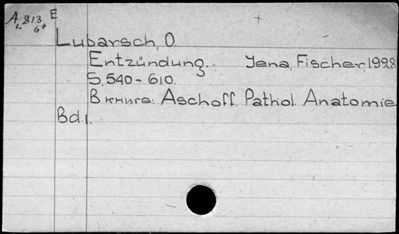 A 813 E
L 6*
Lubarsch, O.
Entzündung. Jena, Fischer 1928
S. 540-610.
В книге: Aschoff Pathol. Anatomie
Bd. 1.